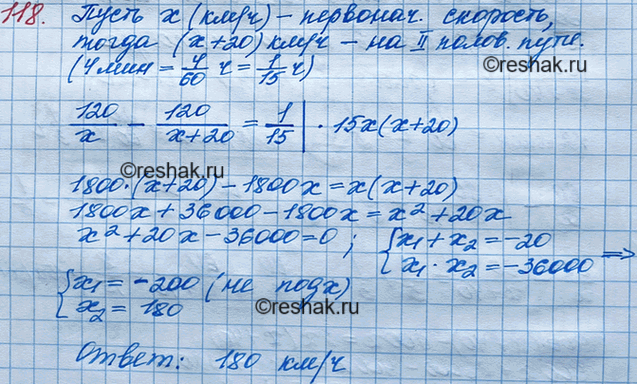 118. Пусть x (км/ч) – первонач. скорость,
тогда (x+20) км/ч – на II полов. пути.
(4 мин = 4/60 ч = 1/15 ч)
©reshak.ru
120/x – 120/(x+20) = 1/15 | · 15x(x+20)
©reshak.ru
1800·(x+20) – 1800x = x(x+20)
1800x + 36000 – 1800x = x² + 20x
x² + 20x – 36000 = 0; { x₁ + x₂ = –20
x₁ · x₂ = –36000 ⇒
{ x₁ = –200 (не подх)
x₂ = 180
©reshak.ru
Ответ: 180 км/ч